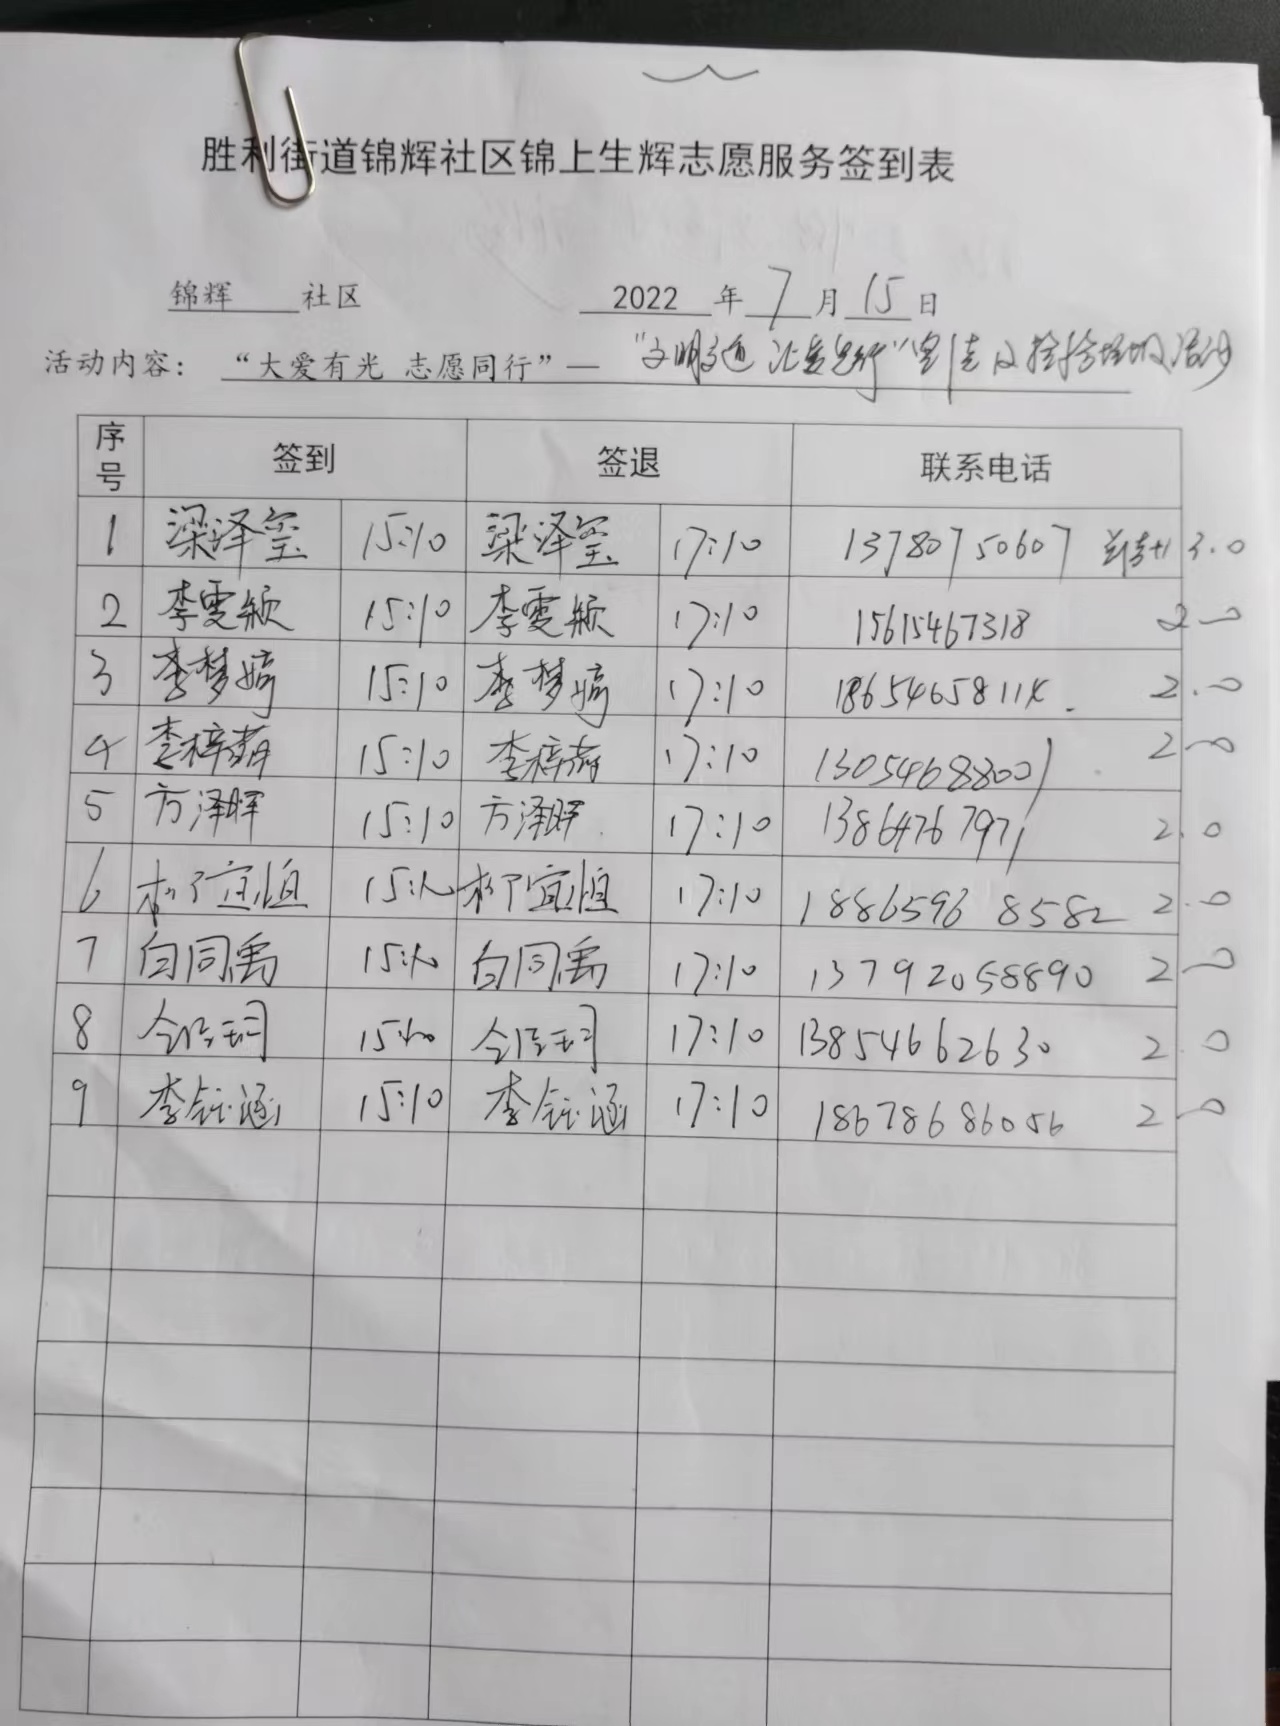 胜利街道锦辉社区锦上生辉志愿服务签到表
锦辉 社区 2022 年 7 月 15 日
活动内容： “大爱有光 志愿同行”— “文明交通 让爱先行”宣传及捡拾垃圾活动
序号 签到 签退 联系电话
1 梁泽莹 15:10 梁泽莹 17:10 13780750607 3.0
2 李雯颖 15:10 李雯颖 17:10 15615467318 2.0
3 李梦婷 15:10 李梦婷 17:10 2.0
4 李梓萌 15:10 李梓萌 17:10 13054688001 2.0
5 方泽晖 15:10 方泽晖 17:10 13864767971 2.0
6 宜恒 15:10 宜恒 17:10 18865968582 2.0
7 白同禹 15:10 白同禹 17:10 13792058890 2.0
8 15:10 17:10 13854662630 2.0
9 李钰涵 15:10 李钰涵 17:10 18678686056 2.0